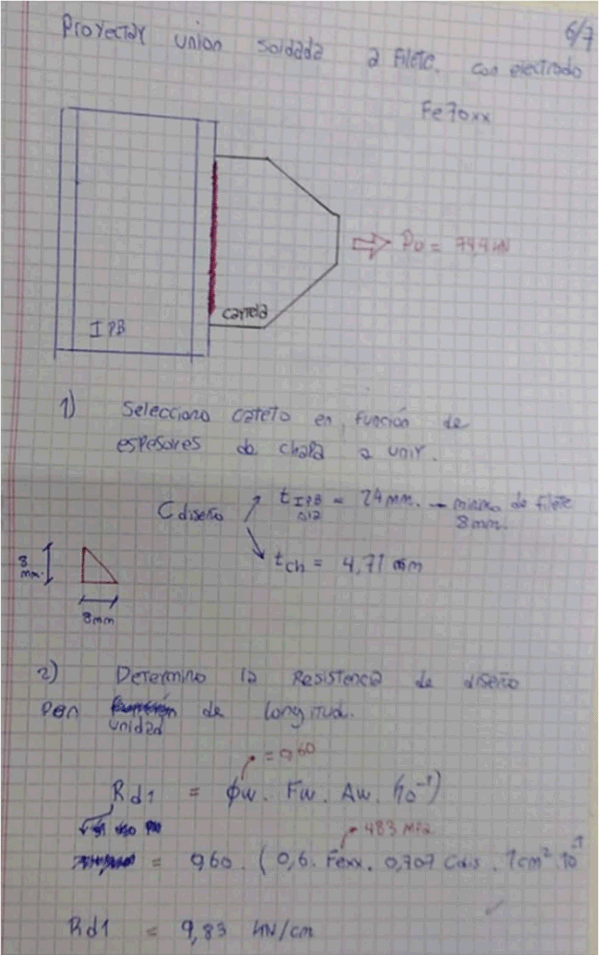 6/7
Proyectar union soldada a Filete. con electrodo
Fe70xx
Pu = 744 kN
cartela
IPB
1) Selecciono cateto en función de
espesores de chapa a unir.
C diseño
t IPB = 24 mm. - minimo de filete
8mm.
tch = 4,71 mm
8
mm.
8mm
2) Determino la Resistencia de diseño
por unidad de longitud.
= 0,60
Rd1 = ϕw. Fw. Aw. (10⁻¹)
483 MPa
= 0,60 . ( 0,6. Fexx. 0,707 Cdis . 1cm² . 10⁻¹
Rd1 = 9,83 kN/cm